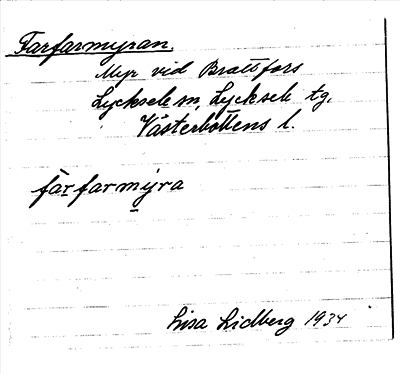 Farfarmyran.
Myr vid Brattfors
Lycksele sn, Lycksele tg,
Västerbottens l.
farfarmyra
Lisa Lidberg 1934